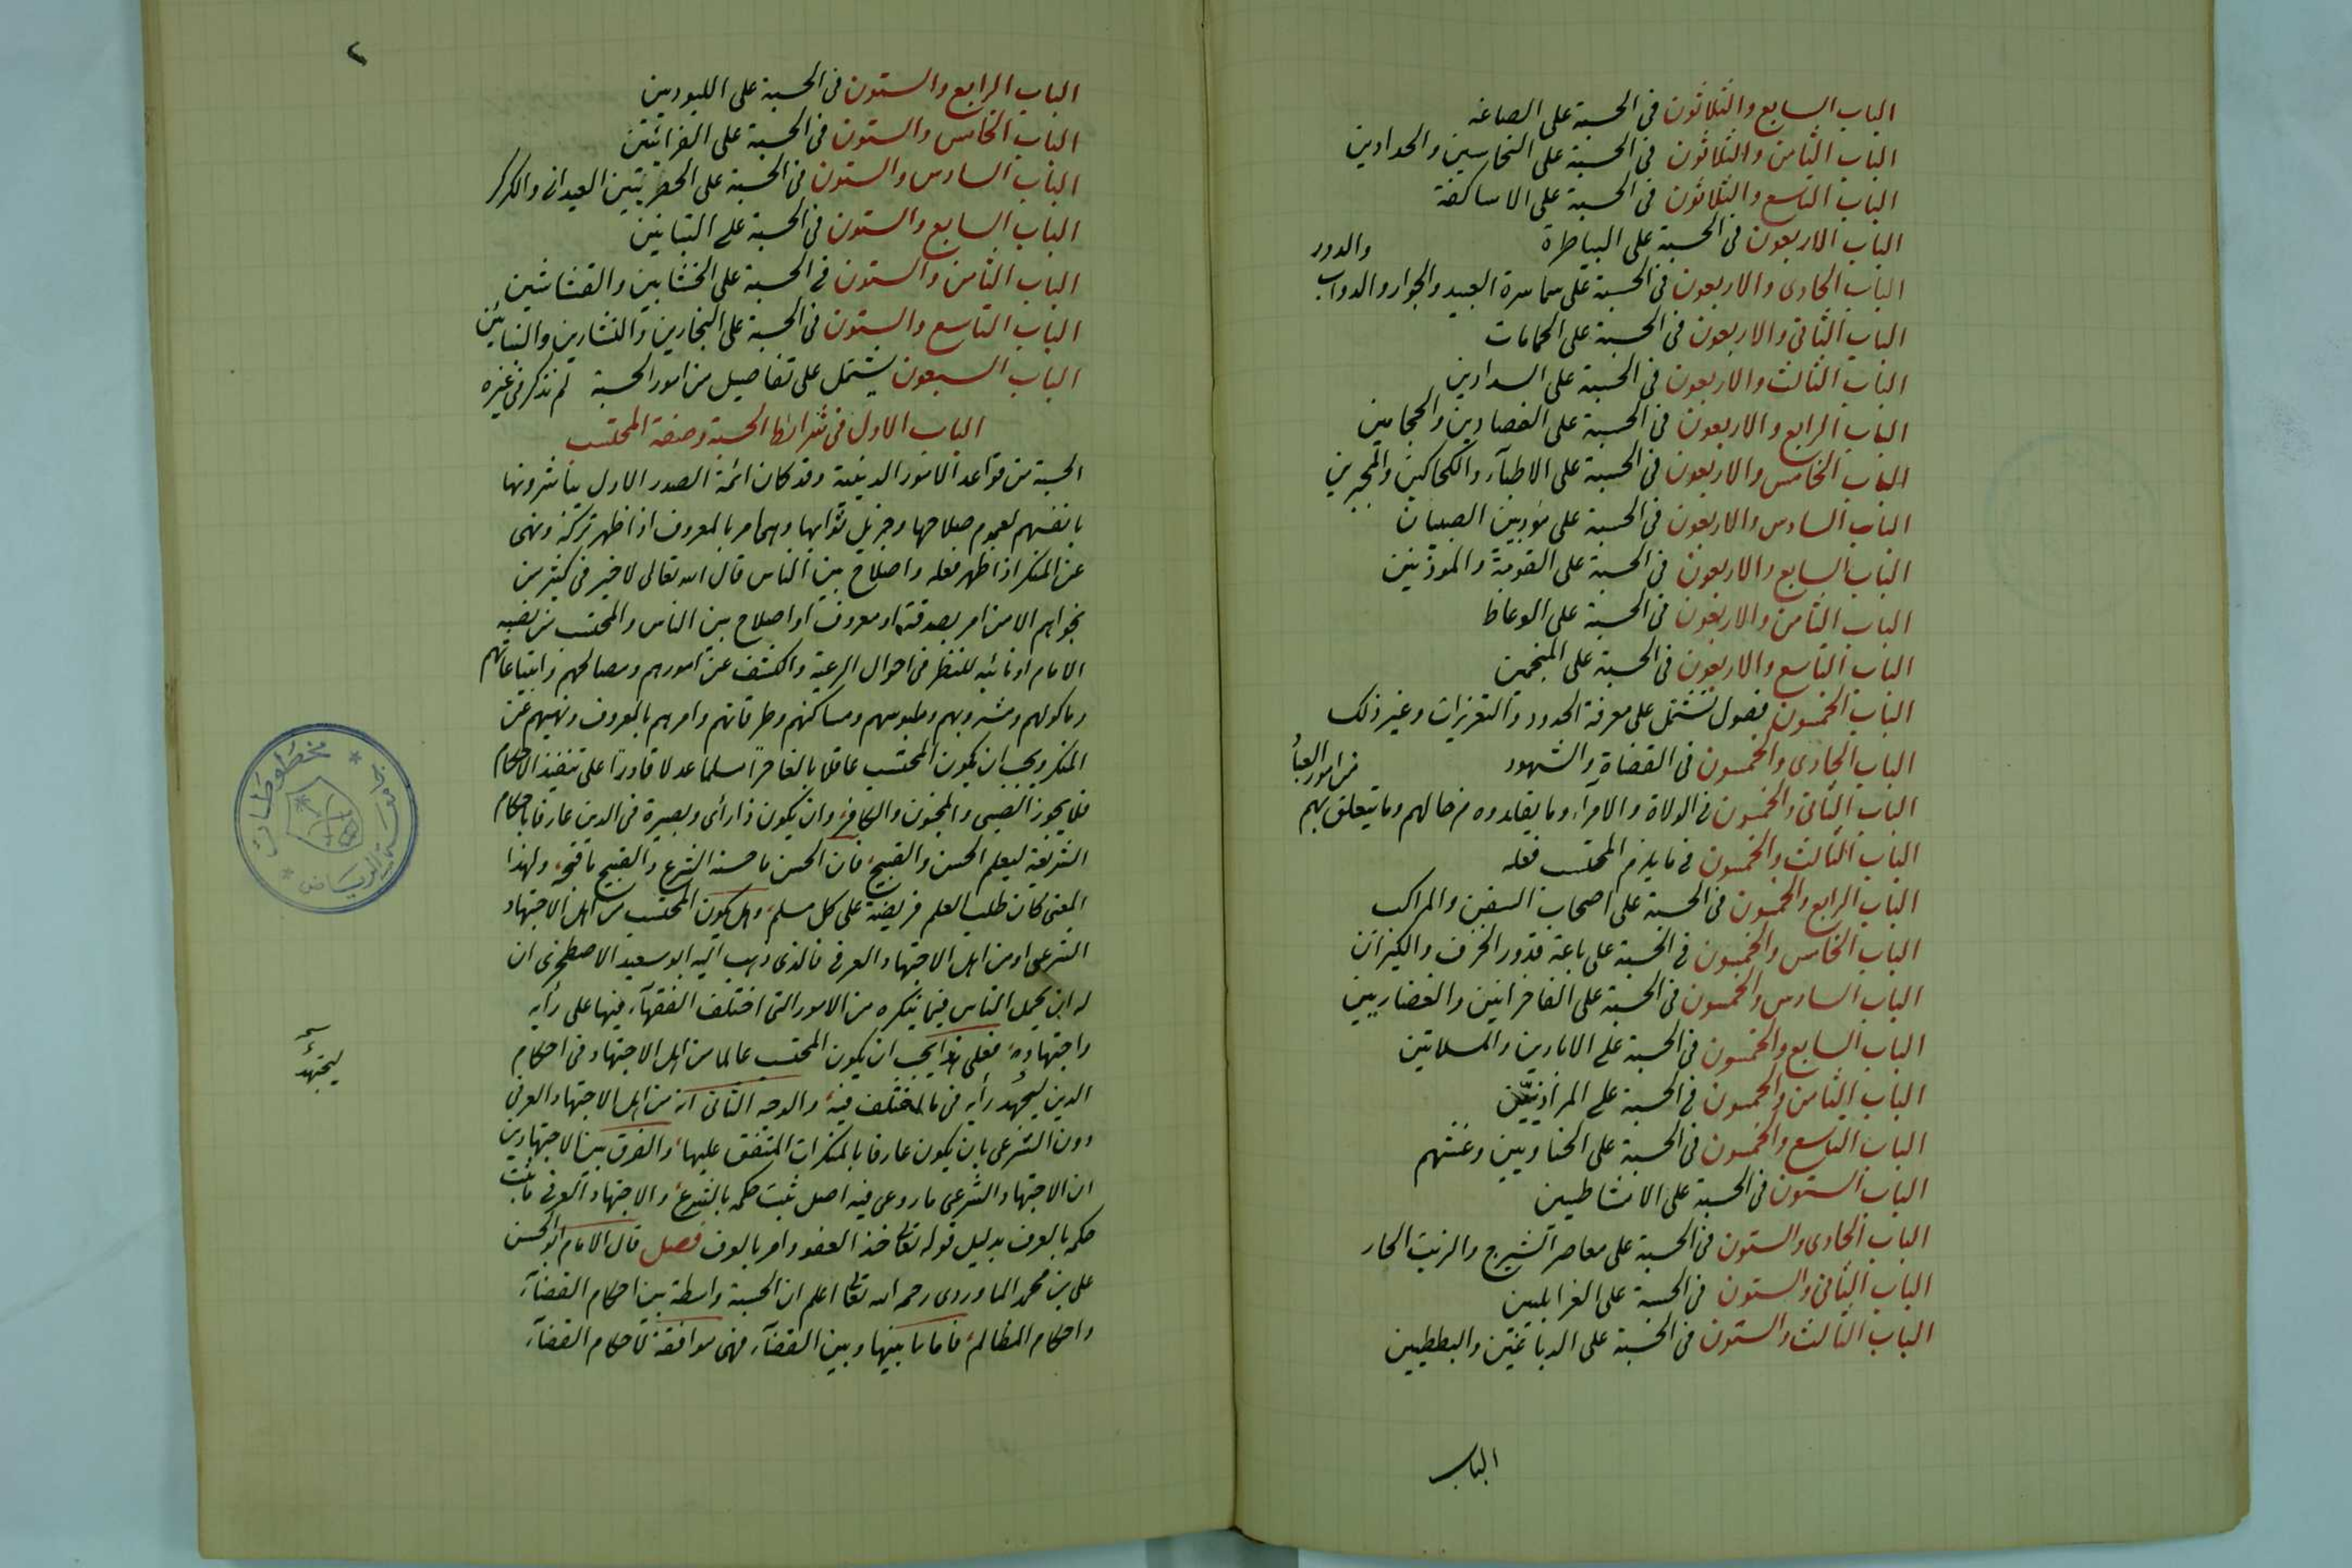 الباب السابع والثلاثون في الحسبة على الصاغة
الباب الثامن والثلاثون في الحسبة على النحاسين والحدادين
الباب التاسع والثلاثون في الحسبة على الاساكفة
الباب الاربعون في الحسبة على البياطرة
والدور
الباب الحادى والاربعون في الحسبة على سماسرة العبيد والجوار والدواب
الباب الثاني والاربعون في الحسبة على الحمامات
الباب الثالث والاربعون في الحسبة على السدارين
الباب الرابع والاربعون في الحسبة على الفصادين والحجامين
الباب الخامس والاربعون في الحسبة على الاطبآء والكحالين والمجبرين
الباب السادس والاربعون في الحسبة على مؤدبين الصبيان
الباب السابع والاربعون في الحسبة على القومة والموذنين
الباب الثامن والاربعون في الحسبة على الوعاظ
الباب التاسع والاربعون في الحسبة على المنجمين
الباب الخمسون فصول تشتمل على معرفة الحدود والتعزيرات وغير ذلك
الباب الحادى والخمسون في القضاة والشهود
من امور العباد
الباب الثاني والخمسون في الولاة والامرآء وما يقلدوه من حالهم وما يتعلق بهم
الباب الثالث والخمسون في ما يلزم المحتسب فعله
الباب الرابع والخمسون في الحسبة على اصحاب السفن والمراكب
الباب الخامس والخمسون في الحسبة على باعة قدور الخزف والكيزان
الباب السادس والخمسون في الحسبة على الفاخرانيين والغضاريين
الباب السابع والخمسون في الحسبة على الابارين والمسلاتين
الباب الثامن والخمسون في الحسبة على المرادنيين
الباب التاسع والخمسون في الحسبة على الحناويين وغشهم
الباب الستون في الحسبة على الامشاطيين
الباب الحادى والستون في الحسبة على معاصر الشيرج والزيت الحار
الباب الثاني والستون في الحسبة على الغرابليين
الباب الثالث والستون في الحسبة على الدباغين والبططيين
الباب
٢
الباب الرابع والستون في الحسبة على اللبوديين
الباب الخامس والستون في الحسبة على الفرائين
الباب السادس والستون في الحسبة على الحصريين العبدانى والكركر
الباب السابع والستون في الحسبة على التبانين
الباب الثامن والستون في الحسبة على الخشابين والقشاشين
الباب التاسع والستون في الحسبة على النجارين والنشارين والبنائين
الباب السبعون يشتمل على تفاصيل من امور الحسبة لم تذكر في غيره
الباب الاول في شرائط الحسبة وصفة المحتسب
الحسبة من قواعد الامور الدينية وقد كان ائمة الصدر الاول يباشرونها
بانفسهم لعموم صلاحها وجزيل ثوابها وهى امر بالمعروف اذا ظهر تركه ونهى
عن المنكر اذا ظهر فعله واصلاح بين الناس قال الله تعالى لا خير في كثير من
نجواهم الا من امر بصدقة او معروف او اصلاح بين الناس والمحتسب من نصبه
الامام او نائبه للنظر في احوال الرعية والكشف عن امورهم ومصالحهم وابتياعاتهم
وماكولهم ومشروبهم وملبوسهم ومساكنهم وطرقاتهم وامرهم بالمعروف ونهيهم عن
المنكر ويجب ان يكون المحتسب عاقلا بالغا حرا مسلما عدلا قادرا على تنفيذ الاحكام
فلا يجوز الصبى والمجنون والكافر وان يكون ذا رأى وبصيرة في الدين عارفا باحكام
الشريعة ليعلم الحسن والقبيح فان الحسن ما حسنه الشرع والقبيح ما قبحه ولهذا
المعنى كان طلب العلم فريضة على كل مسلم وهل يكون المحتسب من اهل الاجتهاد
الشرعى او من اهل الاجتهاد العرفى فالذى ذهب اليه ابو سعيد الاصطخرى ان
له ان يحمل الناس فيما ينكره من الامور التى اختلف الفقهآء فيها على رأيه
واجتهاده فعلى هذا يجب ان يكون المحتسب عالما من اهل الاجتهاد في احكام
الدين ليجهد رأيه في ما اختلف فيه والوجه الثانى انه من اهل الاجتهاد العرفى
ليجتهد
دون الشرعى بان يكون عارفا بالمنكرات المتفق عليها والفرق بين الاجتهادين
ان الاجتهاد الشرعى ما روعى فيه اصل ثبت حكمه بالشرع والاجتهاد العرفى ما ثبت
حكمه بالعرف بدليل قوله تعالى خذ العفو وامر بالعرف فصل قال الامام ابو الحسن
على بن محمد الماوردى رحمه الله تعالى اعلم ان الحسبة واسطة بين احكام القضآء
واحكام المظالم فاما ما بينها وبين القضآء فهى موافقة لاحكام القضآء
مخطوطات
الرياض